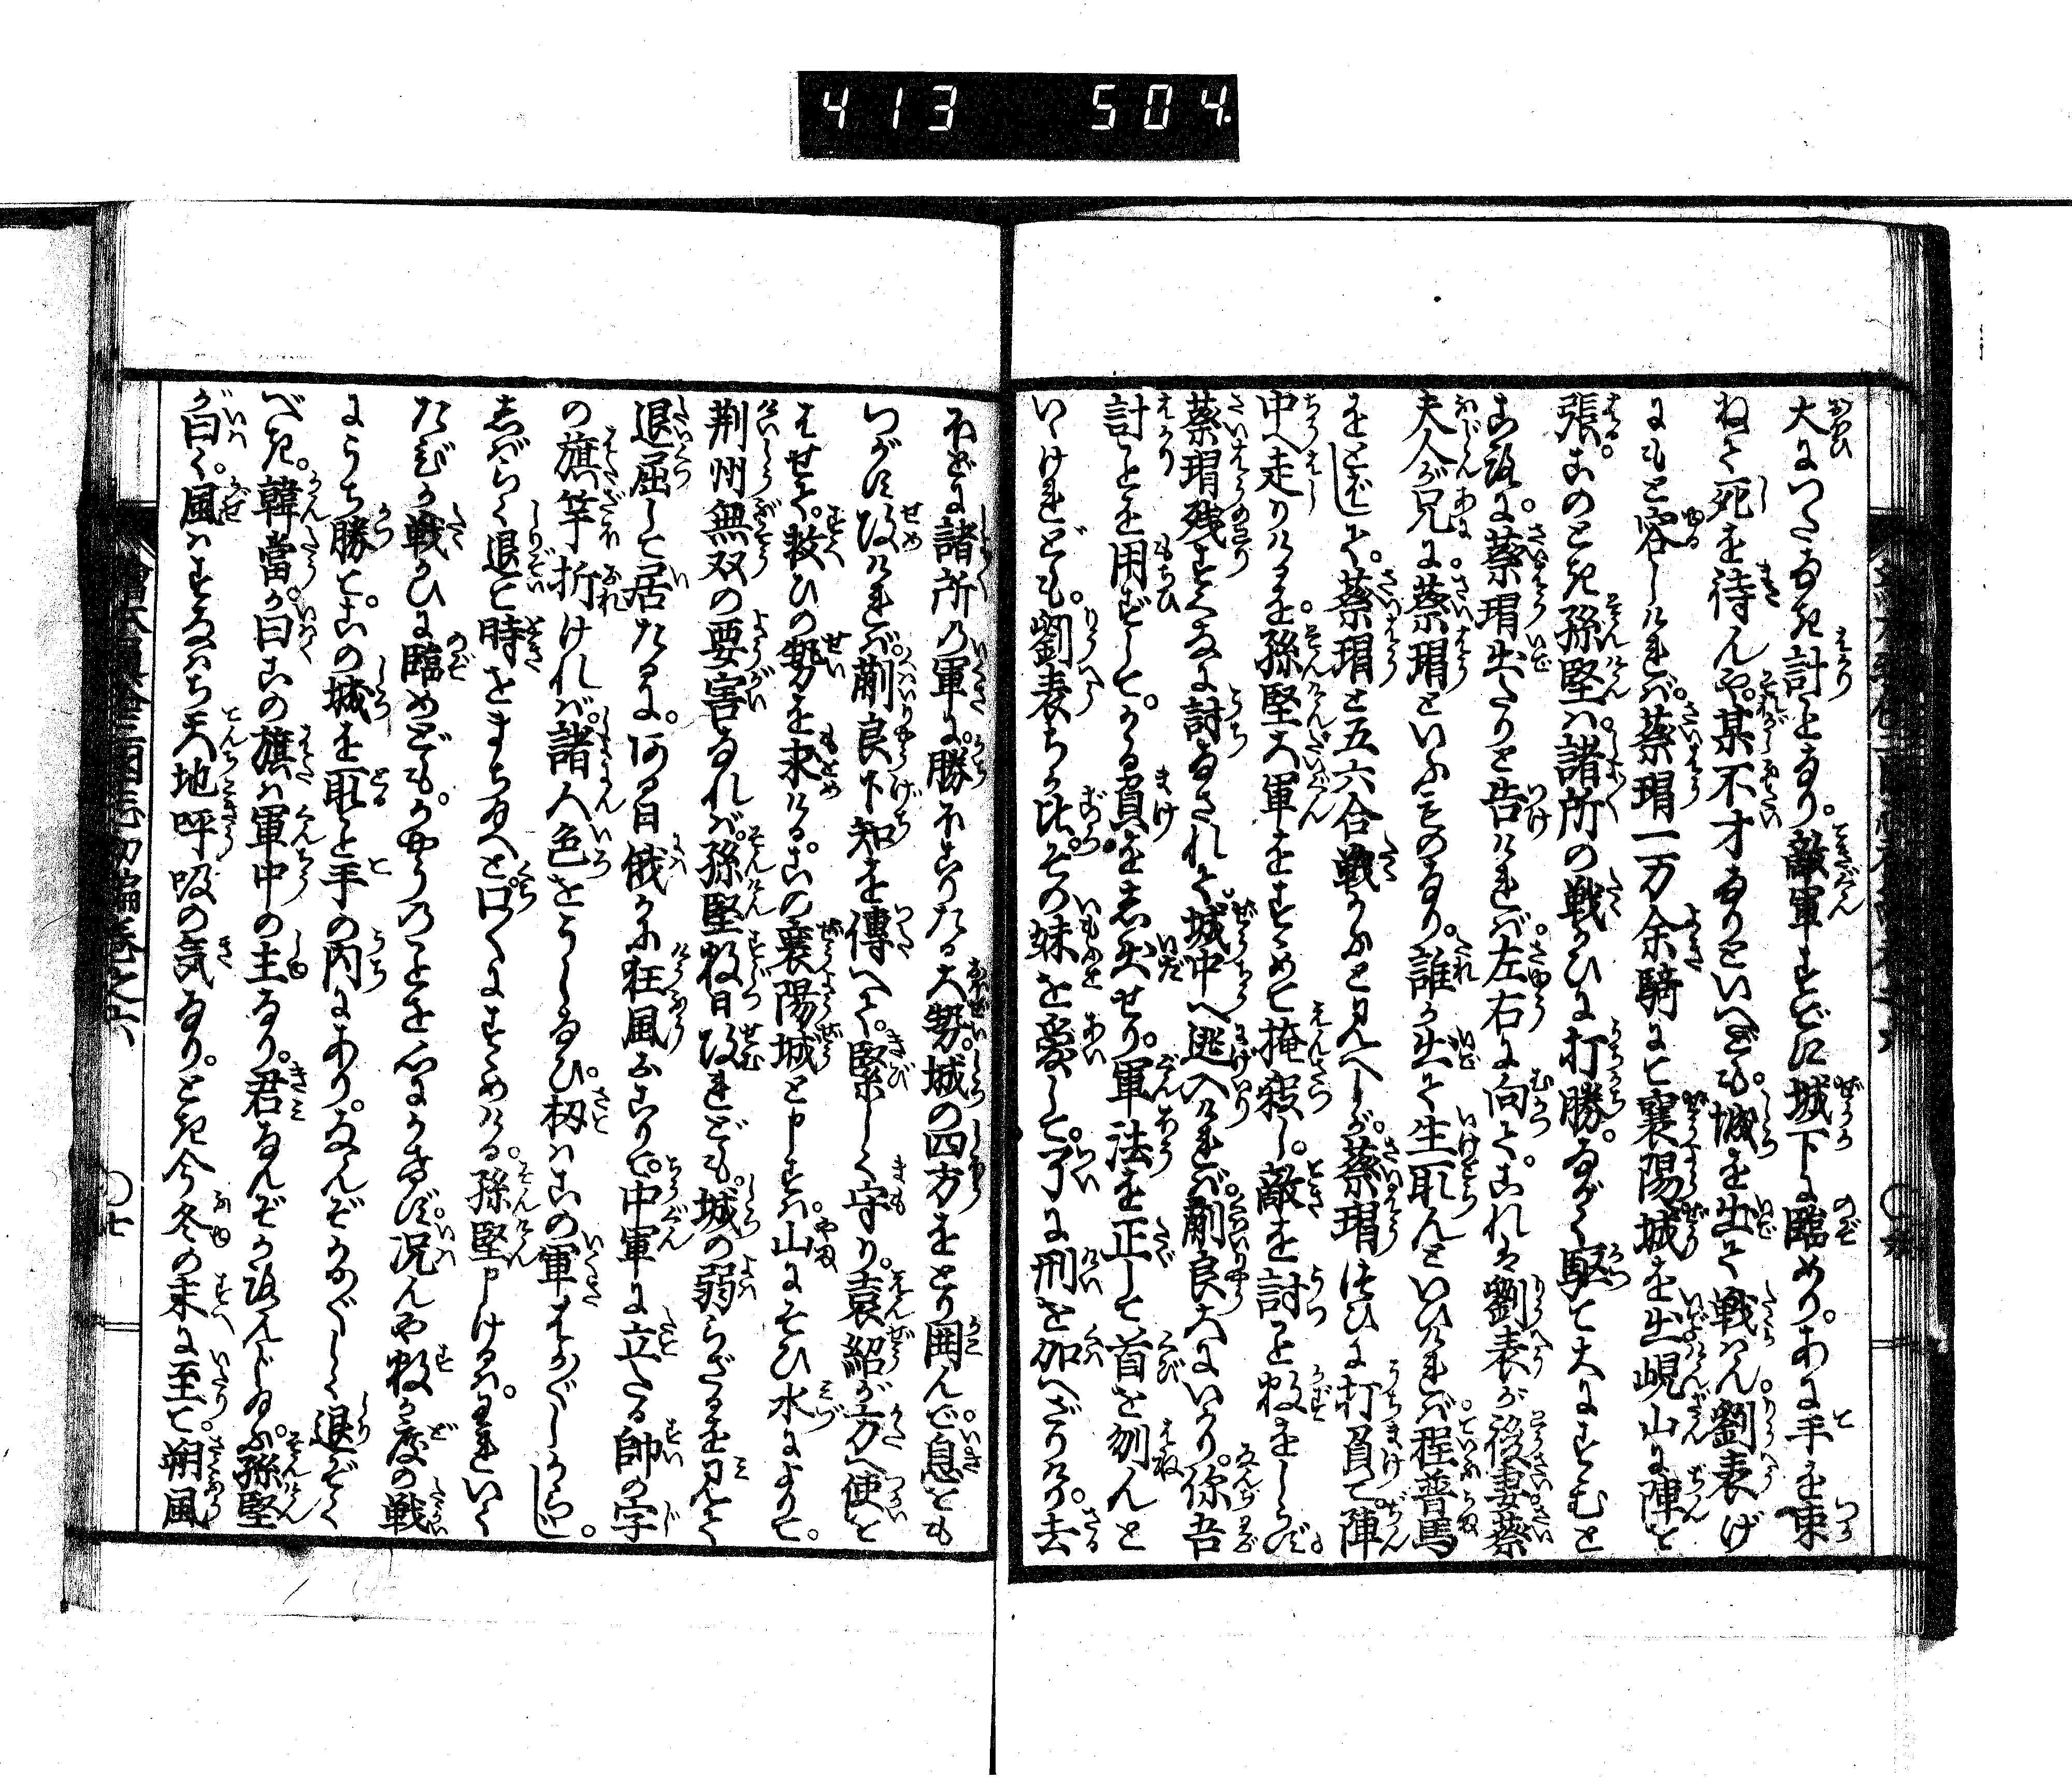 413 504.
大につたなき計となり。敵軍すでに城下に臨めり。あに手を束
ねて死を待んや。某不才なりといへども。城を出て戦はん。劉表げ
にもと容しければ。蔡瑁一万余騎にて襄陽城を出峴山に陣を
張。このとき孫堅は。諸所の戦ひに打勝。ながく駆て大にすゝむと
ころに。蔡瑁出たりと告ければ。左右に向て。これは劉表が後妻蔡
夫人が兄に。蔡瑁といふものなり。誰か出て生取んといひければ。程普馬
をとばして。蔡瑁と五六合戦かふと見へしが。蔡瑁つひに打負て。陣
中へ走りけるを。孫堅大軍をすゝめて掩殺し。敵を討こと数をしらず
蔡瑁残すくなに討なされて。城中へ逃入ければ。蒯良大にいかり。你吾
計ことを用ずして。かゝる負をし出せり。軍法を正して首を刎んと
いゝけれども。劉表ちか比。その妹を愛して。了に刑を加へざりけり。去
ほどに諸所の軍に。勝ほこりたる大勢。城の四方をとり囲んで。息をも
つがず攻ければ。蒯良下知を傳へて。緊しく守り。袁紹が方へ使を
はせて。救ひの勢を求ける。この襄陽城と申すは。山にそひ水によりて。
荊州無双の要害なれば。孫堅数日攻れども。城の弱らざるを見て
退屈して居たるに。ある日俄かに狂風おこりて。中軍に立たる帥の字
の旗竿折ければ。諸人色をうしなひ。扨はこの軍はかゞしからじ。
しばらく退て時をまち給へと。口〻にすゝめける。孫堅申けるは。われいく
たびか戦かひに臨めども。かやうのことを心にかけず。况んや数か度の戦
にうち勝て。この城を取こと手の内にあり。なんぞかろ〲しく退ぞく
べき。韓當が曰。この旗は軍中の主なり。君なんぞかろんじ給ふ。孫堅
が曰く。風はすなはち天地呼吸の気なり。とき今冬の末に至て。朔風